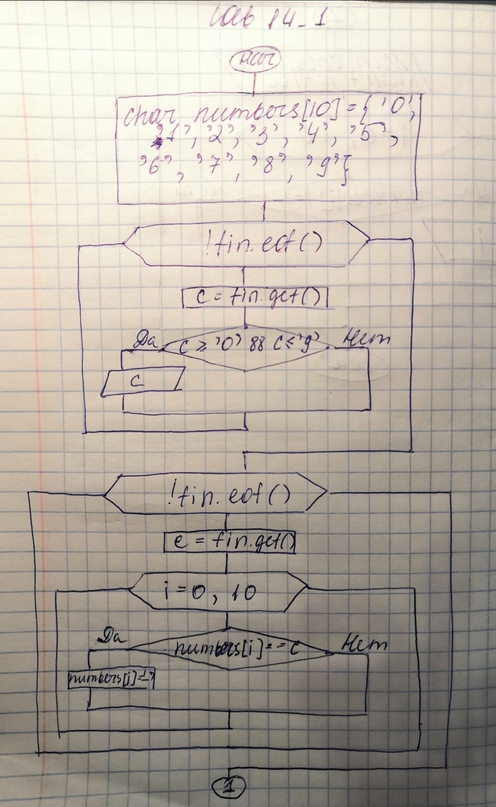 Lab 14_1
нач
char numbers[10] = { '0',
'1', '2', '3', '4', '5',
'6', '7', '8', '9'}
!fin.eof()
c = fin.get()
Да
c ≥ '0' && c ≤ '9'
Нет
c
!fin.eof()
c = fin.get()
i = 0, 10
Да
numbers[i] == c
Нет
numbers[i] =
1